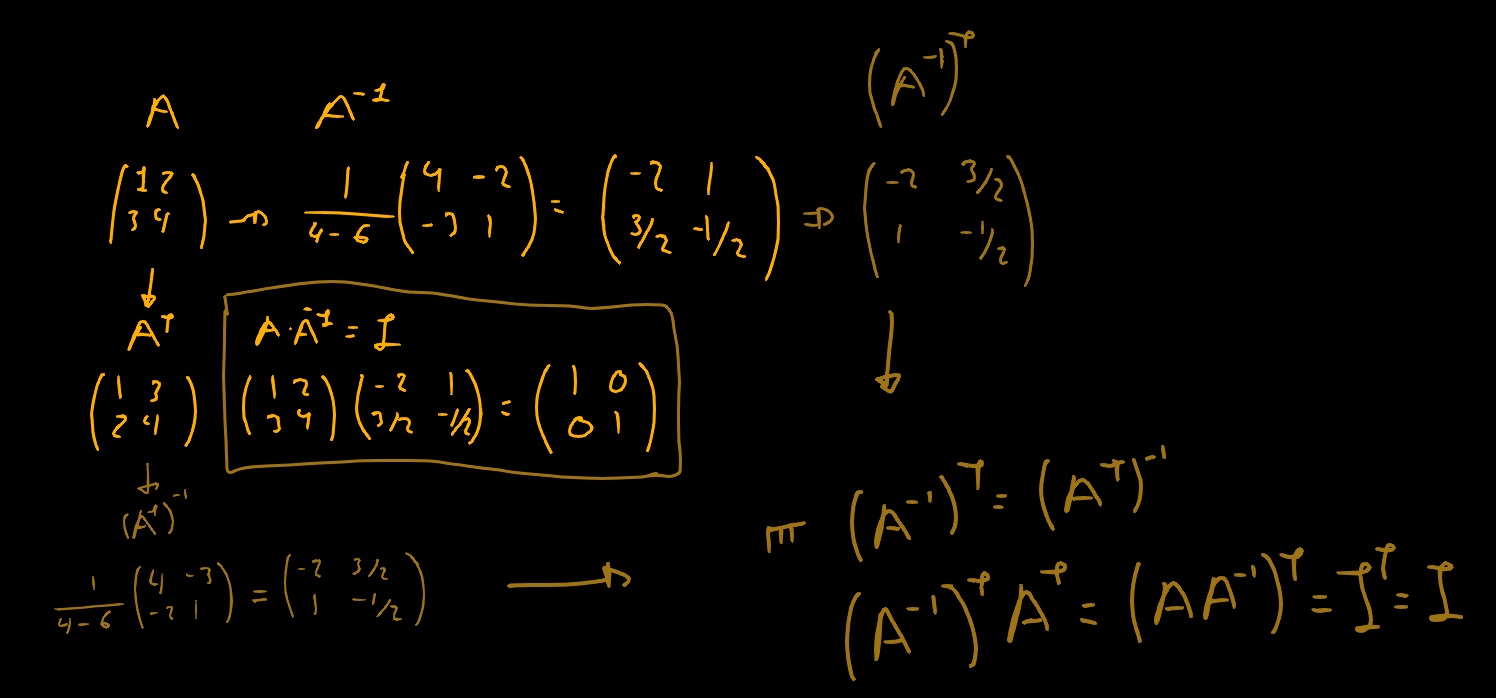 (A⁻¹)ᵀ
A A⁻¹
(1 2
3 4) → 1/(4-6) (4 -2
-3 1) = (-2 1
3/2 -1/2) ⇒ (-2 3/2
1 -1/2)
Aᵀ
(1 3
2 4)
A·A⁻¹ = I
(1 2
3 4) (-2 1
3/2 -1/2) = (1 0
0 1)
(Aᵀ)⁻¹
1/(4-6) (4 -3
-2 1) = (-2 3/2
1 -1/2) →
(A⁻¹)ᵀ = (Aᵀ)⁻¹
(A⁻¹)ᵀ Aᵀ = (AA⁻¹)ᵀ = Iᵀ = I